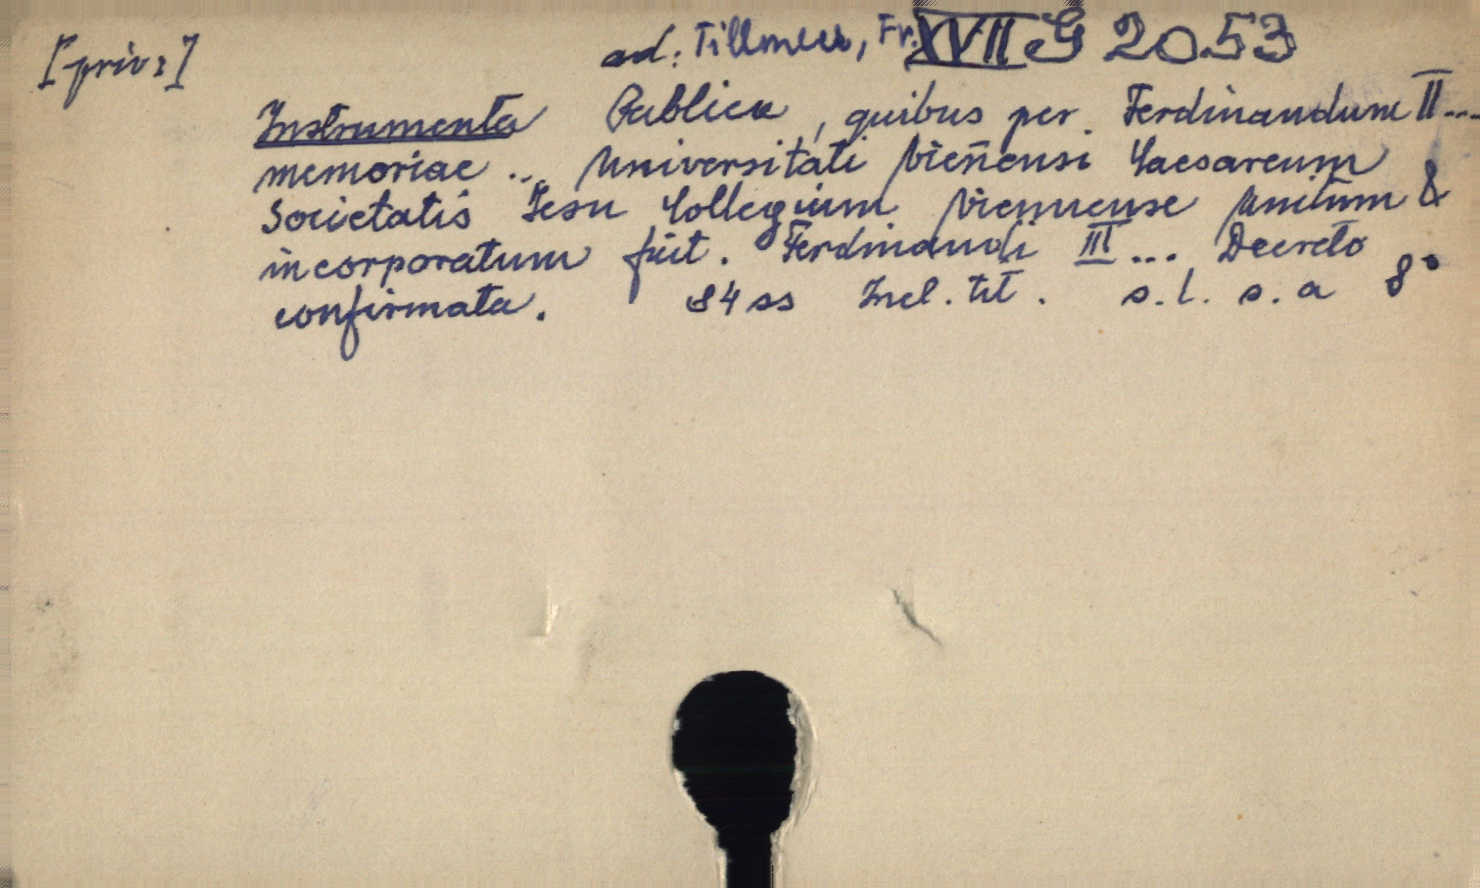 [priv:]
ad: Tillmez, Fr. XVII G 2053
Instrumenta Publica, quibus per Ferdinandum II...
memoriae ... Universitati Vieñensi Caesareum
Societatis Iesu Collegium Viennense Unitum &
incorporatum fuit. Ferdinandi III ... Decreto
confirmata. 84 ss Incl. tit. s.l. s.a 8°